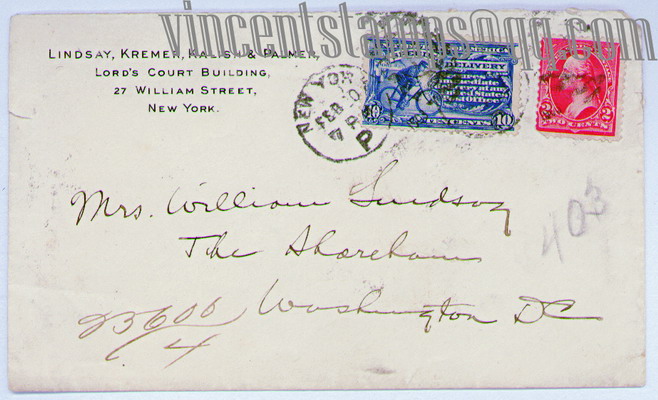 vincentstamps@qq.com
LINDSAY, KREMER, KALISH & PALMER,
LORD'S COURT BUILDING,
27 WILLIAM STREET,
NEW YORK.
NEW YORK
FEB
P
DELIVERY
10
TEN CENTS
10
2
TWO CENTS
2
Mrs. William Lindsay
The Shoreham
Washington DC
403
23606
4